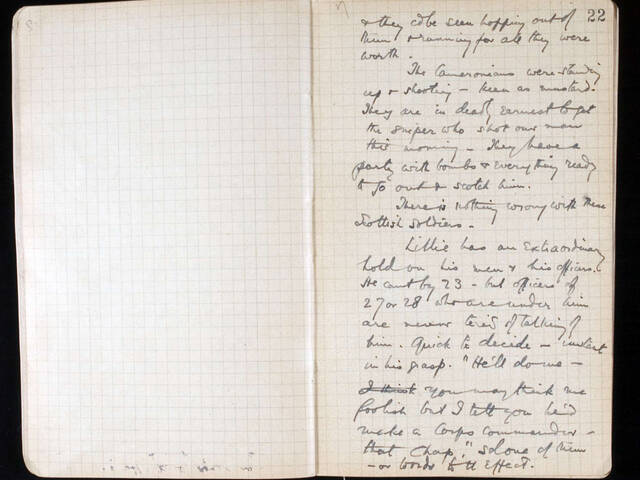 22
& they cd be seen hopping out of
them & running for all they were
worth.
The Cameronians were standing
up & shooting — keen as mustard.
They are in deadly earnest to get
the sniper who shot our man
this morning — They have a
party with bombs & everything ready
to go out & scotch him.
There is nothing wrong with these
Scottish soldiers.
Lillie has an extraordinary
hold on his men & his officers.
He cant be 23 — but officers of
27 or 28 who are under him
are never tired of talking of
him. Quick to decide —
in his grasp. "He'll do me —
I think you may think me
foolish but I tell you he'd
make a Corps commander —
that chap." sd one of them
— or words to tt effect.